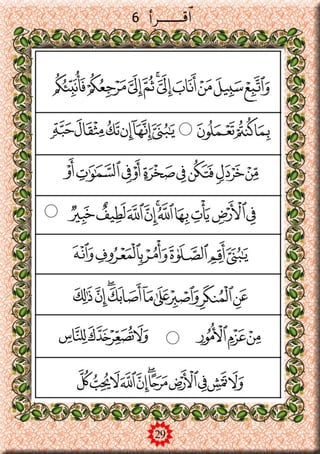 ٱقــرأ 6
وَٱتَّبِعْ سَبِيلَ مَنْ أَنَابَ إِلَىَّ ۚ ثُمَّ إِلَىَّ مَرْجِعُكُمْ فَأُنَبِّئُكُم
بِمَا كُنتُمْ تَعْمَلُونَ ○ يَٰبُنَىَّ إِنَّهَآ إِن تَكُ مِثْقَالَ حَبَّةٍ
مِّنْ خَرْدَلٍ فَتَكُن فِى صَخْرَةٍ أَوْ فِى ٱلسَّمَٰوَٰتِ أَوْ
فِى ٱلْأَرْضِ يَأْتِ بِهَا ٱللَّهُ ۚ إِنَّ ٱللَّهَ لَطِيفٌ خَبِيرٌ ○
يَٰبُنَىَّ أَقِمِ ٱلصَّلَوٰةَ وَأْمُرْ بِٱلْمَعْرُوفِ وَٱنْهَ
عَنِ ٱلْمُنكَرِ وَٱصْبِرْ عَلَىٰ مَآ أَصَابَكَ ۖ إِنَّ ذَٰلِكَ
مِنْ عَزْمِ ٱلْأُمُورِ ○ وَلَا تُصَعِّرْ خَدَّكَ لِلنَّاسِ
وَلَا تَمْشِ فِى ٱلْأَرْضِ مَرَحًا ۖ إِنَّ ٱللَّهَ لَا يُحِبُّ كُلَّ
29